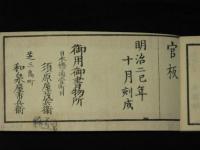 官板
明治二己年
十月刻成
御用御書物所
日本橋通壱町目
須原屋茂兵衛
芝三島町
和泉屋市兵衛